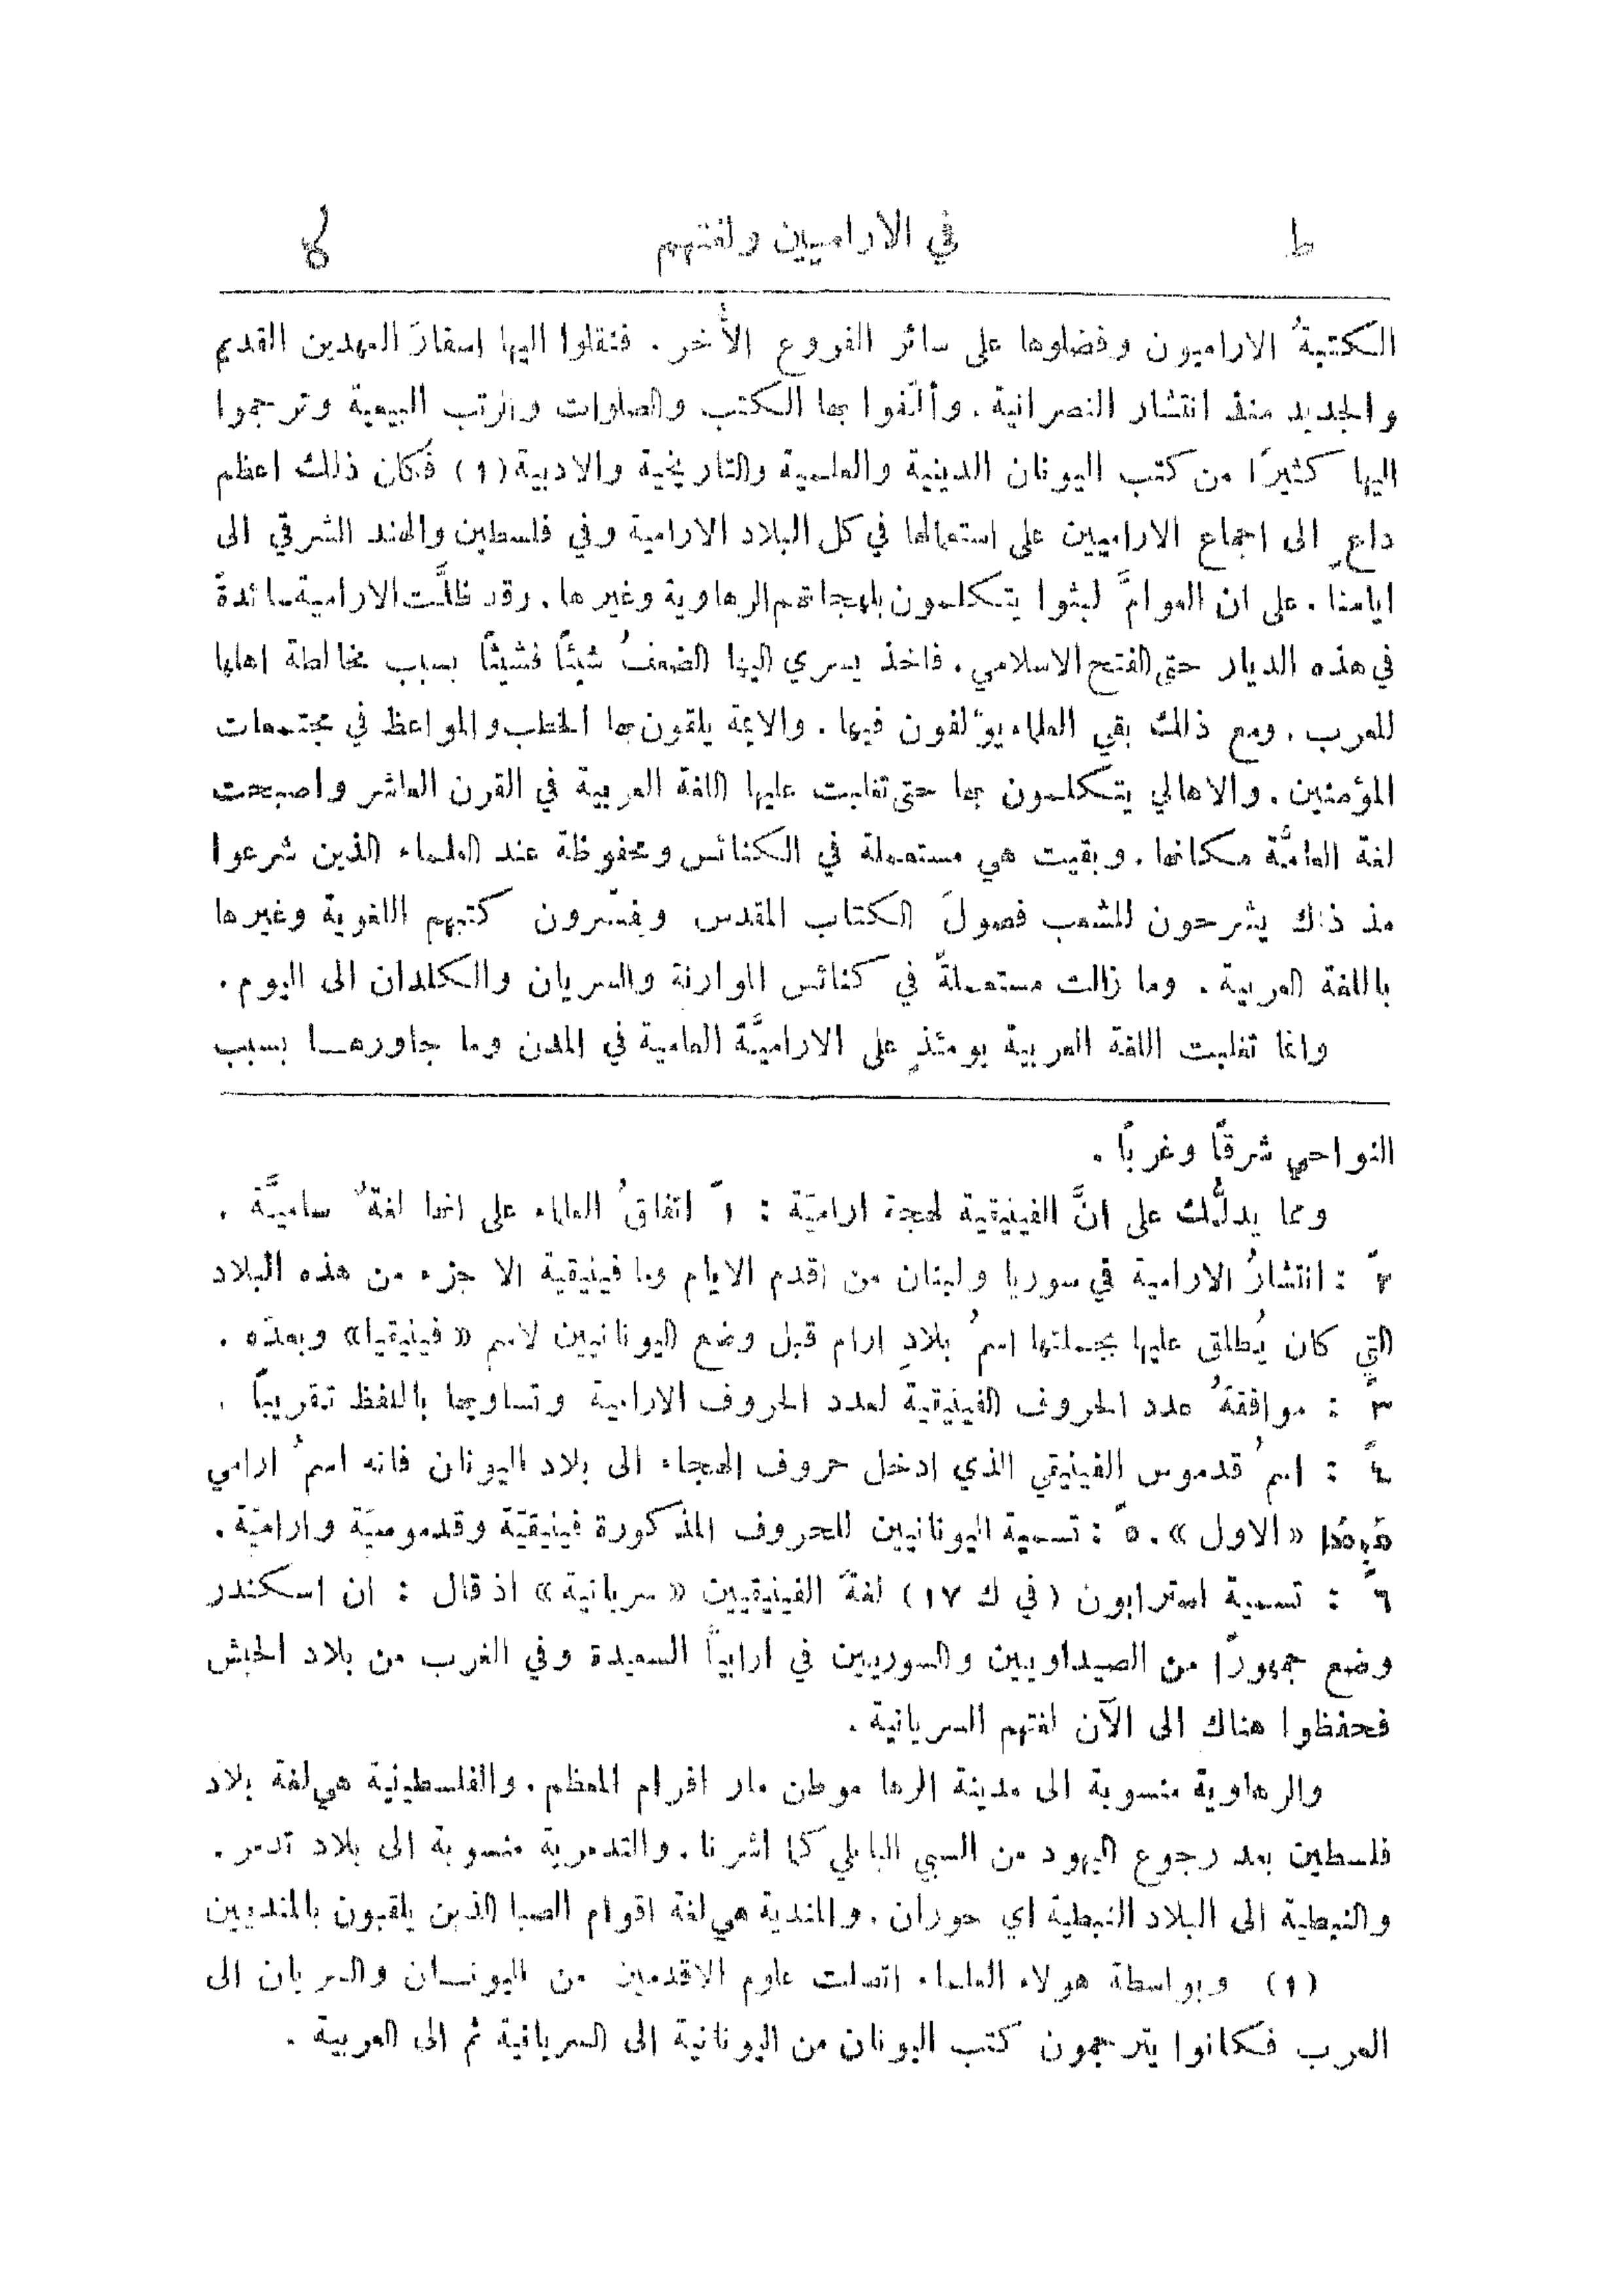 ط في الاراميين ولغتهم ܛ
الكتبيةُ الاراميون وفضلوها على سائر الفروع الأُخر . فنقلوا اليها اسفارَ العهدين القديم
والجديد منذ انتشار النصرانية . وألَّفوا بها الكتب والصلوات والرتب البيعية وترجموا
اليها كثيرًا من كتب اليونان الدينية والعلمية والتاريخية والادبية (١) فكان ذلك اعظم
داعٍ الى اجماع الاراميين على استعمالها في كل البلاد الارامية وفي فلسطين والهند الشرقي الى
ايامنا . على ان العوامَّ لبثوا يتكلمون بلهجاتهم الرهاوية وغيرها . وقد ظلَّت الارامية سائدةً
في هذه الديار حتى الفتح الاسلامي . فاخذ يسري اليها الضعفُ شيئًا فشيئًا بسبب مخالطة اهلها
للعرب . ومع ذلك بقي العلماء يؤلفون فيها . والائمة يلقون بها الخطب والمواعظ في مجتمعات
المؤمنين . والاهالي يتكلمون بها حتى تغلبت عليها اللغة العربية في القرن العاشر واصبحت
لغة العامَّة مكانها . وبقيت هي مستعملة في الكنائس ومحفوظة عند العلماء الذين شرعوا
مذ ذاك يشرحون للشعب فصولَ الكتاب المقدس ويفسّرون كتبهم اللغوية وغيرها
باللغة العربية . وما زالت مستعملةً في كنائس الموارنة والسريان والكلدان الى اليوم .
وانما تغلبت اللغة العربية يومئذٍ على الاراميَّة العامية في المدن وما جاورهـا بسبب
النواحي شرقًا وغربًا .
ومما يدلُّك على انَّ الفينيقية لهجة اراميّة : ١ً اتفاقُ العلماء على انها لغةٌ ساميَّة .
٢ً : انتشارُ الارامية في سوريا ولبنان من اقدم الايام وما فينيقية الا جزء من هذه البلاد
التي كان يُطلق عليها بجملتها اسمُ بلادِ ارام قبل وضع اليونانيين لاسم «فينيقيا» وبعدَه .
٣ً : موافقةُ عدد الحروف الفينيقية لعدد الحروف الارامية وتساويها باللفظ تقريبًا .
٤ً : اسمُ قدموس الفينيقي الذي ادخل حروف الهجاء الى بلاد اليونان فانه اسمٌ ارامي
ܩܰܕܡܳܝܳܐ «الاول» . ٥ً : تسمية اليونانيين للحروف المذكورة فينيقيّة وقدموسيّة واراميّة .
٦ً : تسمية استرابون (في ك ١٧) لغةَ الفينيقيين «سريانية» اذ قال : ان اسكندر
وضع جمهورًا من الصيداويين والسوريين في ارابيَّا السعيدة وفي الغرب من بلاد الحبش
فحفظوا هناك الى الآن لغتهم السريانية .
والرهاوية منسوبة الى مدينة الرها موطن مار افرام المعظم . والفلسطينية هي لغة بلاد
فلسطين بعد رجوع اليهود من السبي البابلي كما اشرنا . والتدمرية منسوبة الى بلاد تدمر .
والنبطية الى البلاد النبطية اي حوران . والمندية هي لغة اقوام الصبا الذين يلقبون بالمندويين
(١) وبواسطة هولاء العلماء اتصلت علوم الاقدمين من اليونـان والسريان الى
العرب فكانوا يترجمون كتب اليونان من اليونانية الى السريانية ثم الى العربية .